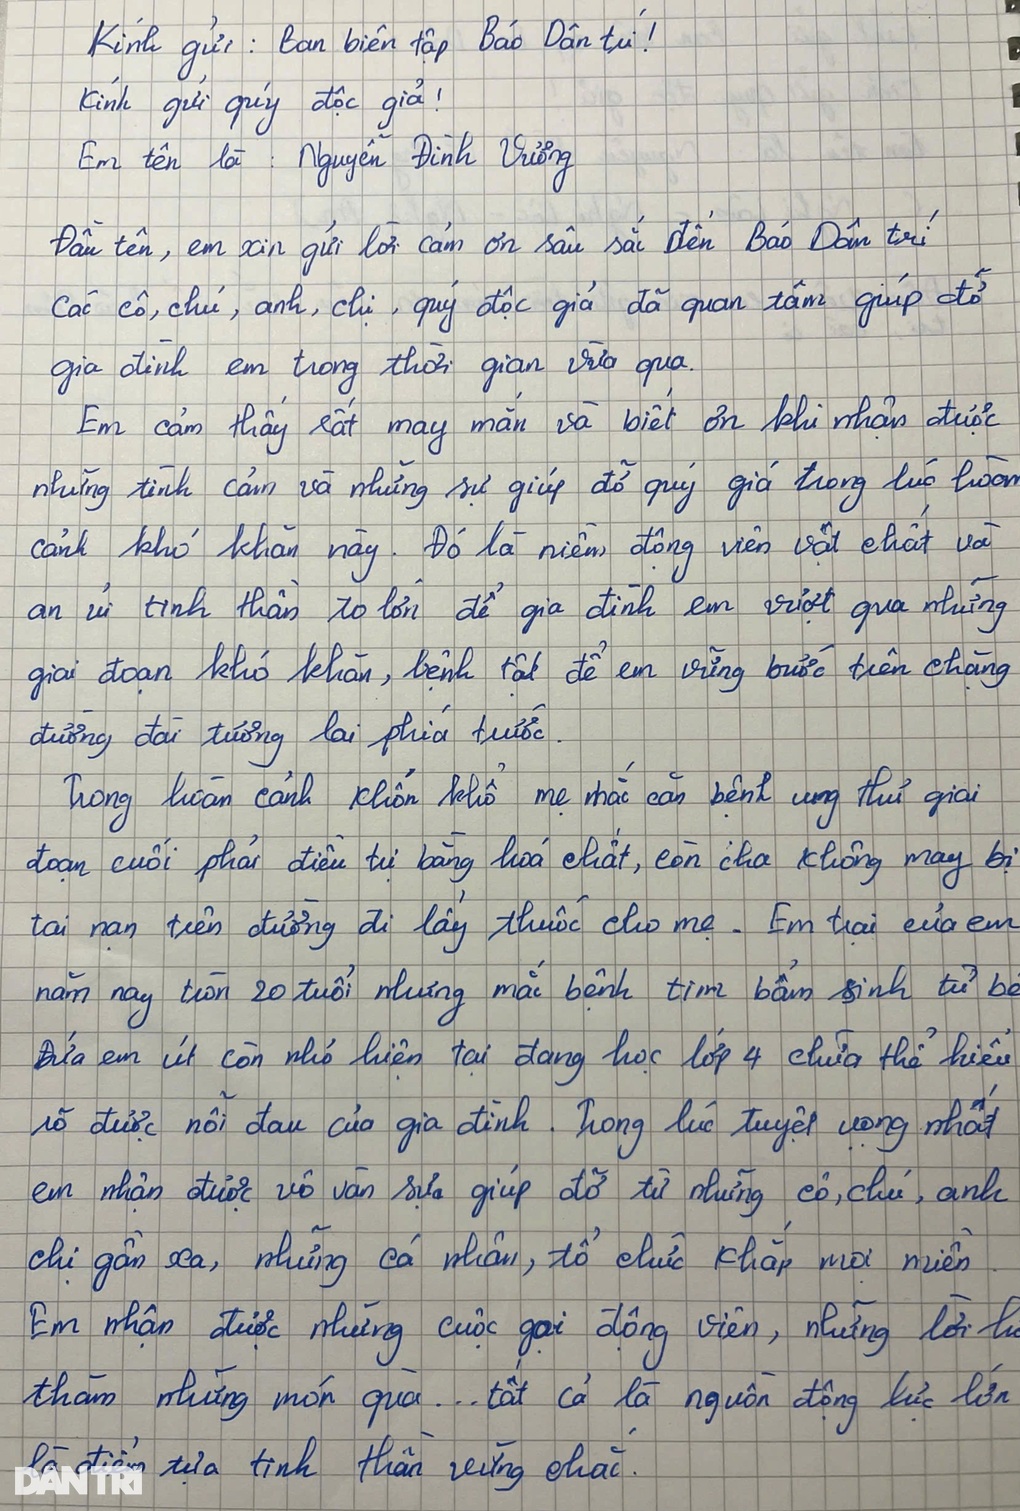 Kính gửi : Ban biên tập Báo Dân trí!
Kính gửi quý độc giả!
Em tên là : Nguyễn Đình Vương
Đầu tên, em xin gửi lời cảm ơn sâu sắc đến Báo Dân trí
Các cô, chú, anh, chị, quý độc giả đã quan tâm giúp đỡ
gia đình em trong thời gian vừa qua.
Em cảm thấy rất may mắn và biết ơn khi nhận được
những tình cảm và những sự giúp đỡ quý giá trong lúc hoàn
cảnh khó khăn này. Đó là niềm động viên vật chất và
an ủi tinh thần to lớn để gia đình em vượt qua những
giai đoạn khó khăn, bệnh tật để em vững bước trên chặng
đường dài tương lai phía trước.
Trong hoàn cảnh khốn khổ mẹ mắc căn bệnh ung thư giai
đoạn cuối phải điều trị bằng hoá chất, còn cha không may bị
tai nạn trên đường đi lấy thuốc cho mẹ. Em trai của em
năm nay tròn 20 tuổi nhưng mắc bệnh tim bẩm sinh từ bé
Đứa em út còn nhỏ hiện tại đang học lớp 4 chưa thể hiểu
rõ được nỗi đau của gia đình. Trong lúc tuyệt vọng nhất
em nhận được vô vàn sự giúp đỡ từ những cô, chú, anh
chị gần xa, những cá nhân, tổ chức khắp mọi miền.
Em nhận được những cuộc gọi động viên, những lời
thăm những món quà... tất cả là nguồn động lực lớn
là điểm tựa tinh thần vững chắc.
DÂN TRÍ